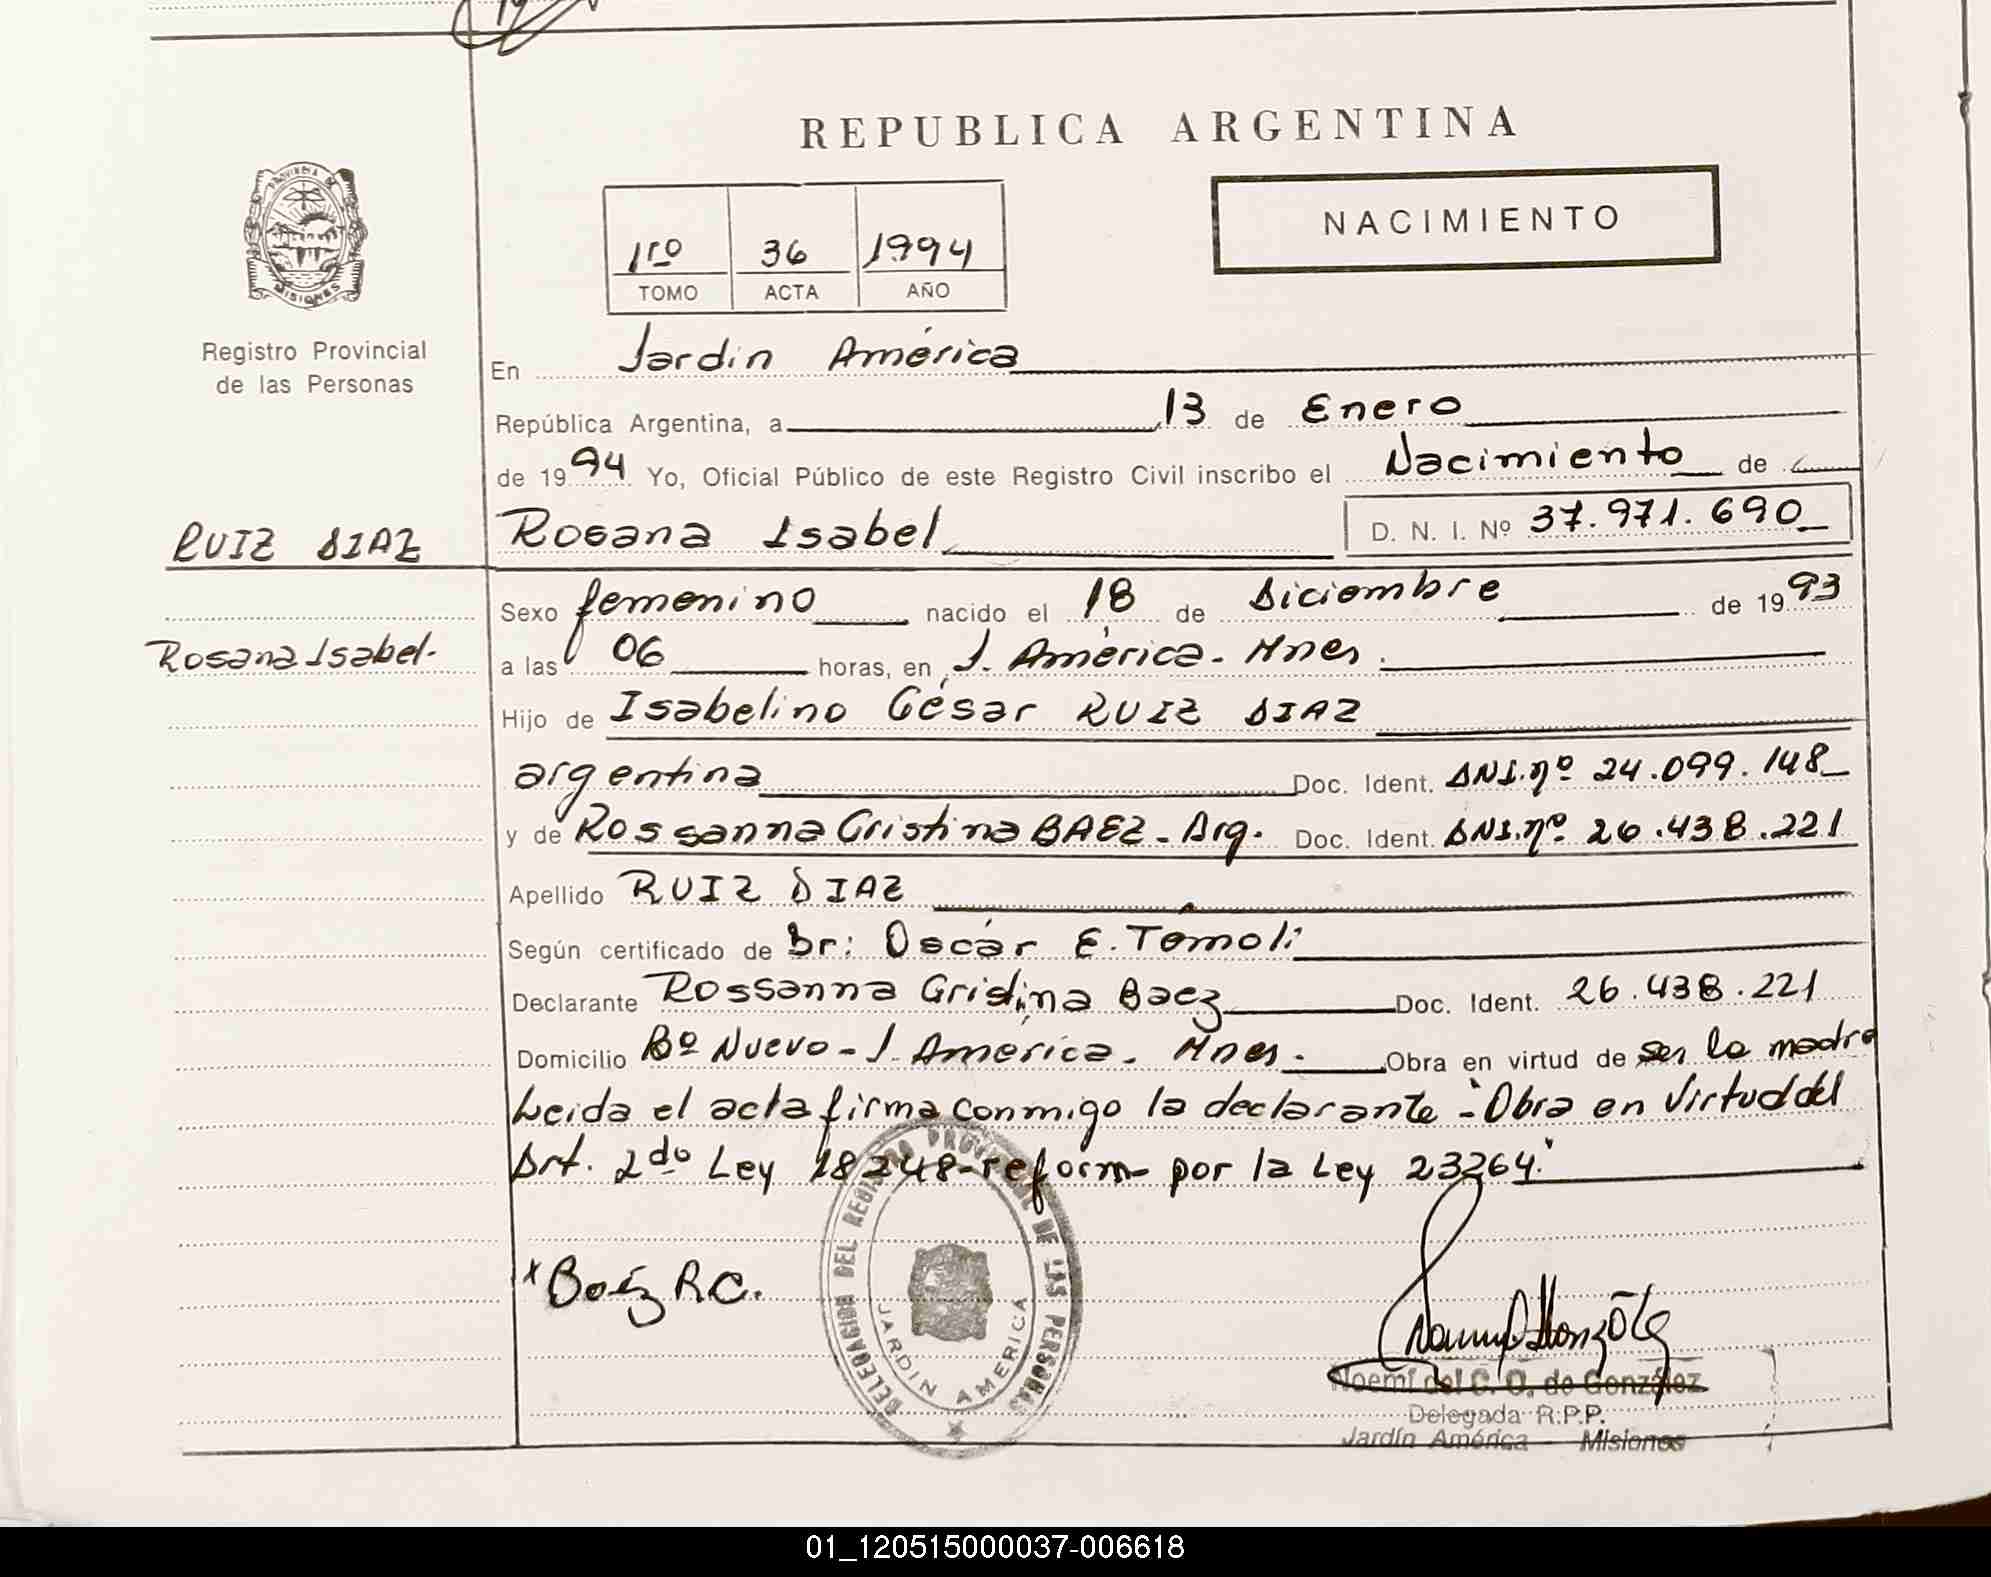 REPUBLICA ARGENTINA
PROVINCIA DE
MISIONES
Registro Provincial
de las Personas
NACIMIENTO
1ro 36 1994
TOMO ACTA AÑO
En Jardin América
República Argentina, a 13 de Enero
de 1994 Yo, Oficial Público de este Registro Civil inscribo el Nacimiento de
RUIZ DIAZ
Rosana Isabel D. N. I. Nº 37.971.690
Sexo femenino nacido el 18 de Diciembre de 1993
Rosana Isabel.
a las 06 horas, en J. América. Mnes.
Hijo de Isabelino César RUIZ DIAZ
argentina Doc. Ident. DNI.nº 24.099.148
y de Rossanna Cristina BAEZ - Arg. Doc. Ident. DNI.nº 26.438.221
Apellido RUIZ DIAZ
Según certificado de Dr: Oscár E. Tomoli
Declarante Rossanna Cristina Baez Doc. Ident. 26.438.221
Domicilio Bº Nuevo - J. América. Mnes. Obra en virtud de ser la madre
Leida el acta firma conmigo la declarante - "Obra en Virtud del
Art. 2do Ley 18248 - reform por la Ley 23264."
x Baéz R.C.
DELEGACION DEL REGISTRO PROVINCIAL DE LAS PERSONAS
JARDIN AMERICA
Noemí del C. O. de González
Delegada R.P.P.
Jardín América - Misiones
01_120515000037-006618